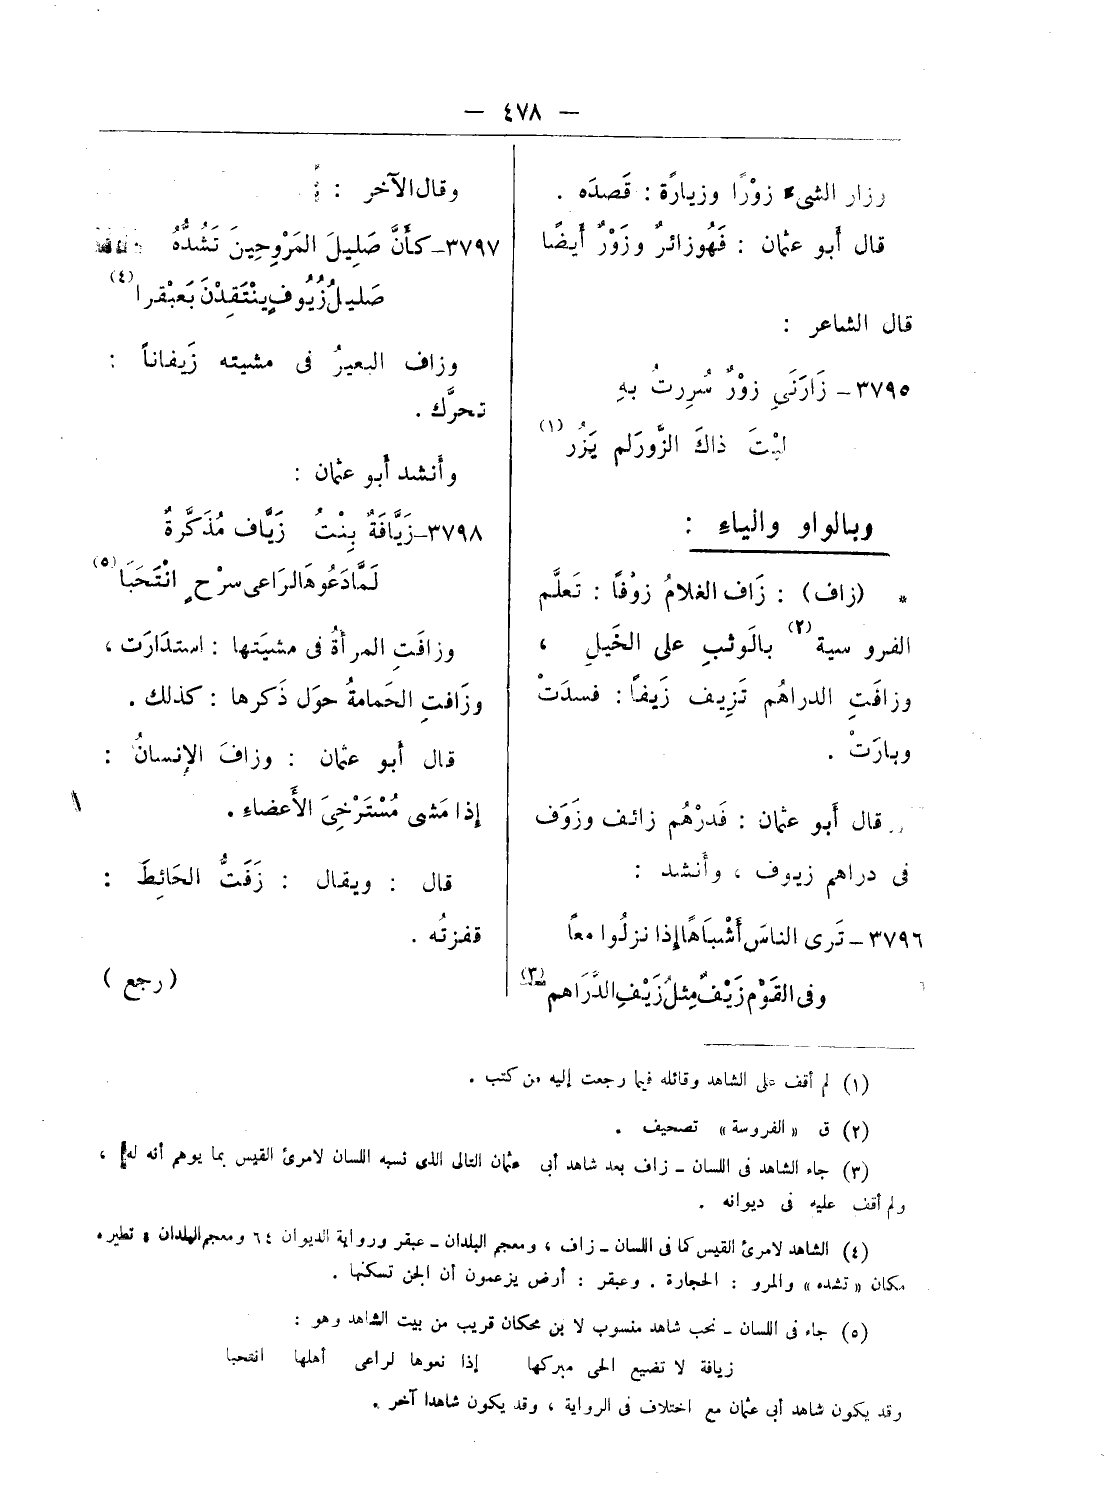 — ٤٧٨ —
وزار الشىء زوْرًا وزيارة : قَصدَه .
قال أبو عثمان : فَهُو زائرٌ وزَوْرٌ أيضًا
قال الشاعر :
٣٧٩٥ – زَارَنَى زوْرٌ سُرِرتُ بهِ
ليْتَ ذاكَ الزَّورَ لم يَزُر (١)
وبالواو والياء :
* (زاف) : زَاف الغلامُ زوْفًا : تَعلَّم
الفروسية (٢) بالَوثبِ على الخَيلِ ،
وزافَتِ الدراهُم تَزِيف زَيفًا : فسدَتْ
وبارَتْ .
قال أبو عثمان : فَدرْهُم زائف وزَوَف
فى دراهم زيوف ، وأنشد :
٣٧٩٦ – تَرى الناسَ أَشْبَاهًا إذا نزلُوا معًا
وفى القَوْم زَيْفٌ مِثلُ زَيْفِ الدَّرَاهم (٣)
وقال الآخر :
٣٧٩٧ – كأَنَّ صَلِيلَ المَرْوِحِينَ تَشُدُّهُ
صَليلُ زُيُوفٍ ينْتَقِدْنَ بَعبْقرا (٤)
وزاف البعيرُ فى مشيته زَيفاناً :
تحرَّك .
وأَنشد أبو عثمان :
٣٧٩٨ – زَيَّافَةٌ بِنْتُ زَيَّاف مُذَكَّرةٌ
لَمَّا دَعُوهَا لرَاعى سرْحٍ انْتَحَبَا (٥)
وزافَتِ المرأةُ فى مشيَتها : استدَارَت ،
وزَافتِ الحَمامةُ حوَل ذَكرها : كذلك .
قال أبو عثمان : وزافَ الإنسانُ :
إذا مَشى مُسْتَرْخِىَ الأَعضاء .
قال : ويقال : زَفَتُّ الحَائِطَ :
قفزتُه .
(رجع)
(١) لم أقف على الشاهد وقائله فيما رجعت إليه من كتب .
(٢) ق «الفروسة» تصحيف .
(٣) جاء الشاهد فى اللسان – زاف بعد شاهد أبى عثمان التالى الذى نسبه اللسان لامرئ القيس بما يوهم أنه له ،
ولم أقف عليه فى ديوانه .
(٤) الشاهد لامرئ القيس كما فى اللسان – زاف ، ومعجم البلدان – عبقر ورواية الديوان ٦٤ ومعجم البلدان «تطيره»
مكان «تشده» والمرو : الحجارة . وعبقر : أرض يزعمون أن الجن تسكنها .
(٥) جاء فى اللسان – نحب شاهد منسوب لا بن محكان قريب من بيت الشاهد وهو :
زيافة لا تضيع الحى مبركها إذا نعوها لراعى أهلها انتحبا
وقد يكون شاهد أبى عثمان مع اختلاف فى الرواية ، وقد يكون شاهدا آخر .